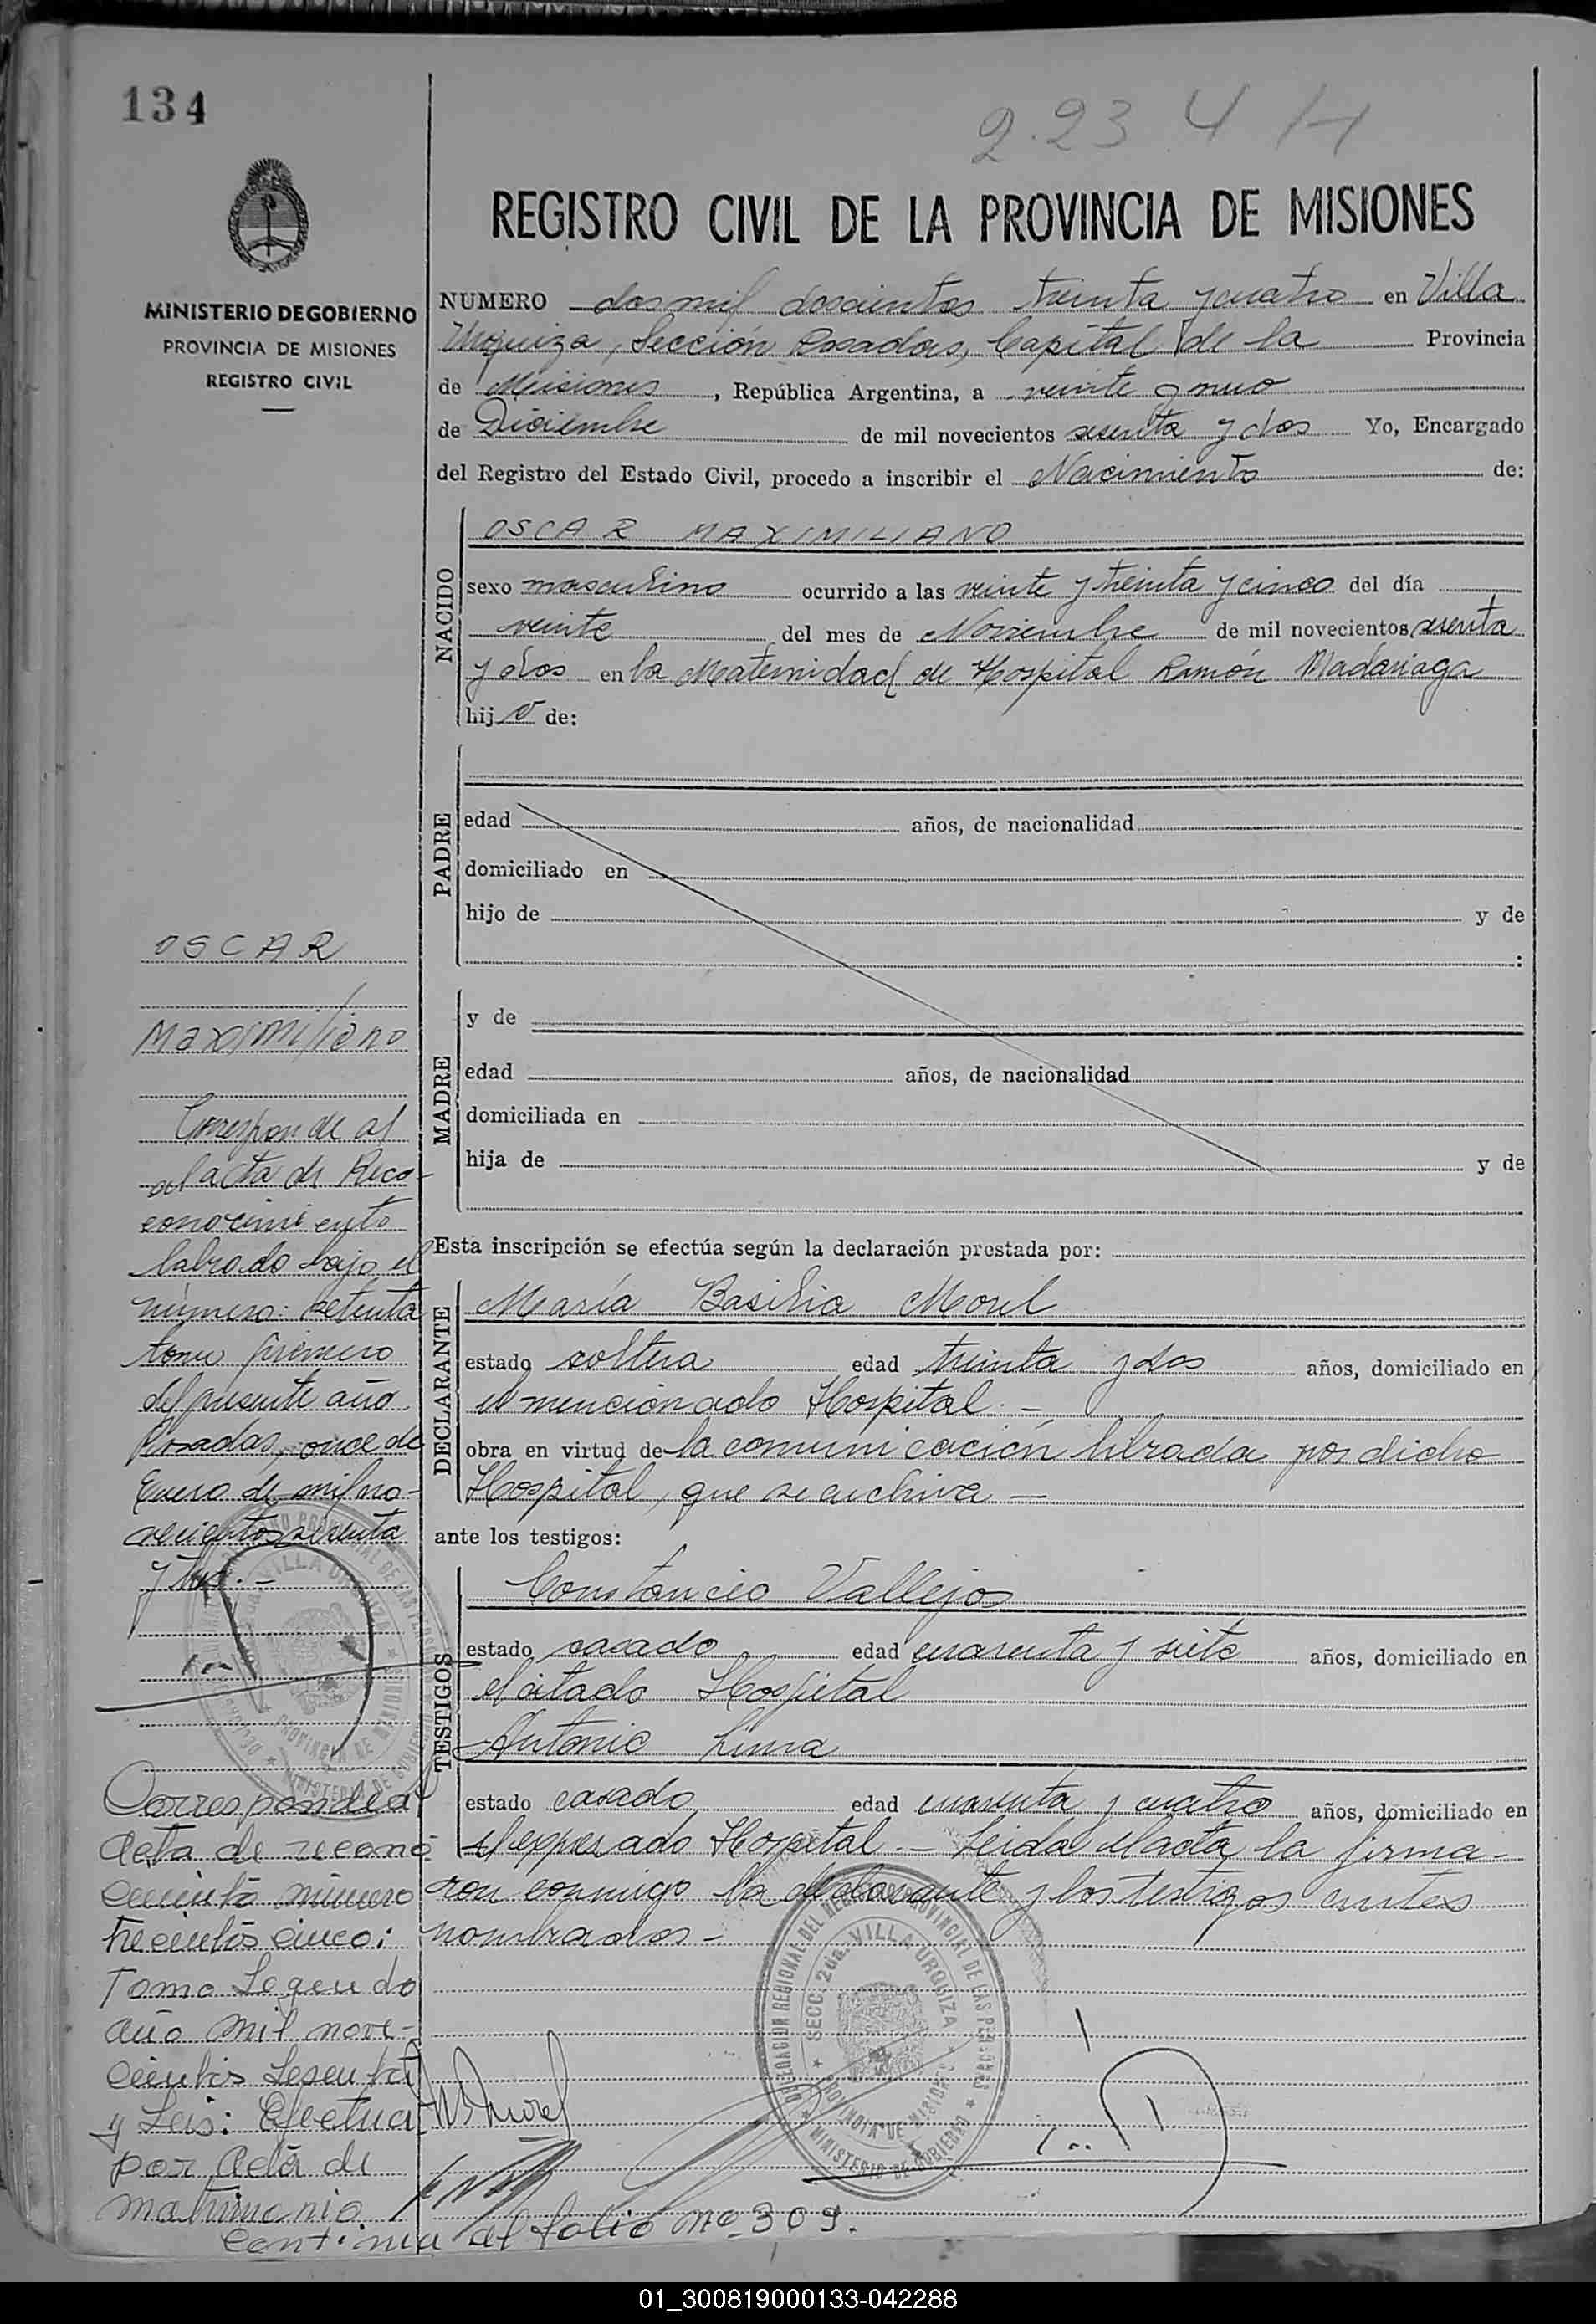 134
2.234 H
MINISTERIO DE GOBIERNO
PROVINCIA DE MISIONES
REGISTRO CIVIL
REGISTRO CIVIL DE LA PROVINCIA DE MISIONES
NUMERO dos mil doscientos treinta y cuatro en Villa
Urquiza, Sección Posadas, Capital de la Provincia
de Misiones, República Argentina, a veinte y nueve
de Diciembre de mil novecientos sesenta y dos Yo, Encargado
del Registro del Estado Civil, procedo a inscribir el Nacimiento de:
NACIDO
OSCAR MAXIMILIANO
sexo masculino ocurrido a las veinte y treinta y cinco del día
veinte del mes de Noviembre de mil novecientos sesenta
y dos en la Maternidad de Hospital Ramón Madariaga
hijo de:
PADRE
edad años, de nacionalidad
domiciliado en
hijo de y de
:
MADRE
y de
edad años, de nacionalidad
domiciliada en
hija de y de
Esta inscripción se efectúa según la declaración prestada por:
DECLARANTE
María Basilia Morel
estado soltera edad treinta y dos años, domiciliado en
el mencionado Hospital. -
obra en virtud de la comunicación librada por dicho
Hospital, que se archiva -
ante los testigos:
TESTIGOS
Constancio Vallejos
estado casado edad cuarenta y siete años, domiciliado en
el citado Hospital
Antonio Lima
estado casado edad cuarenta y cuatro años, domiciliado en
el expresado Hospital. - Leida el acta la firma-
ron conmigo la declarante y los testigos antes
nombrados -
OSCAR
Maximiliano
Corresponde al
al acta de Reco-
conocimiento
labrado bajo el
número: setenta
tomo primero
del presente año
Posadas, once de
Enero de mil no-
vecientos sesenta
y tres. -
Corresponde a
Acta de recono
cimiento número
trecientos cinco:
Tomo Segundo
año mil nove-
cientos sesenta
y seis: Efectua
por Acta de
matrimonio
Continua al folio no 309.
DELEGACION REGIONAL DEL REGISTRO PROVINCIAL DE LAS PERSONAS
SECC. 2da. VILLA URQUIZA
PROVINCIA DE MISIONES
MINISTERIO DE GOBIERNO
01_300819000133-042288